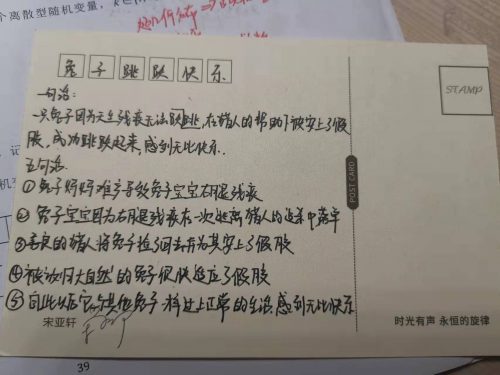 个离散型随机变量,
兔子跳跃快乐
STAMP
一句话:
一只兔子因为天生残疾无法跳跃,在猎人的帮助下被安上了假
肢,成功跳跃起来,感到无比快乐.
五句话
①兔子妈妈难产导致兔子宝宝右腿残疾
②兔子宝宝因为右腿残疾在一次逃离猎人的追杀中落单
③善良的猎人将兔子捡了回去并为其安上了假肢
④被放归大自然的兔子很快适应了假肢
⑤自此以后它与其他兔子一样过上正常的生活,感到无比快乐
POST CARD
宋亚轩
时光有声 永恒的旋律
39